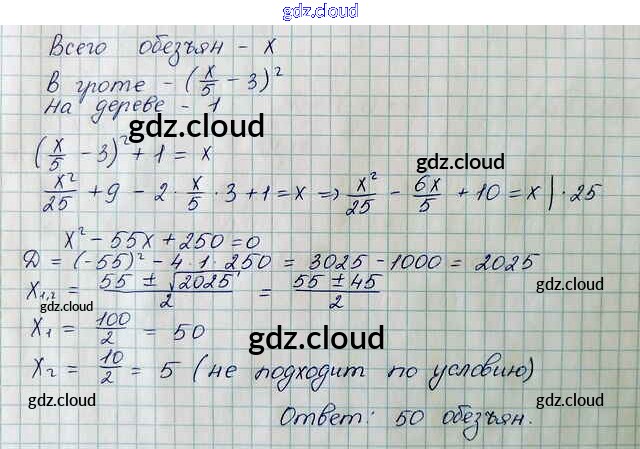 gdz.cloud
Всего обезъян - x
В гроте - (x/5 - 3)²
на дереве - 1
gdz.cloud
(x/5 - 3)² + 1 = x
gdz.cloud
x²/25 + 9 - 2 · x/5 · 3 + 1 = x => x²/25 - 6x/5 + 10 = x | · 25
x² - 55x + 250 = 0
D = (-55)² - 4 · 1 · 250 = 3025 - 1000 = 2025
x₁,₂ = (55 ± √2025)/2 = (55 ± 45)/2
gdz.cloud
gdz.cloud
x₁ = 100/2 = 50
gdz.cloud
x₂ = 10/2 = 5 (не подходит по условию)
gdz.cloud
gdz.cloud
Ответ: 50 обезъян.